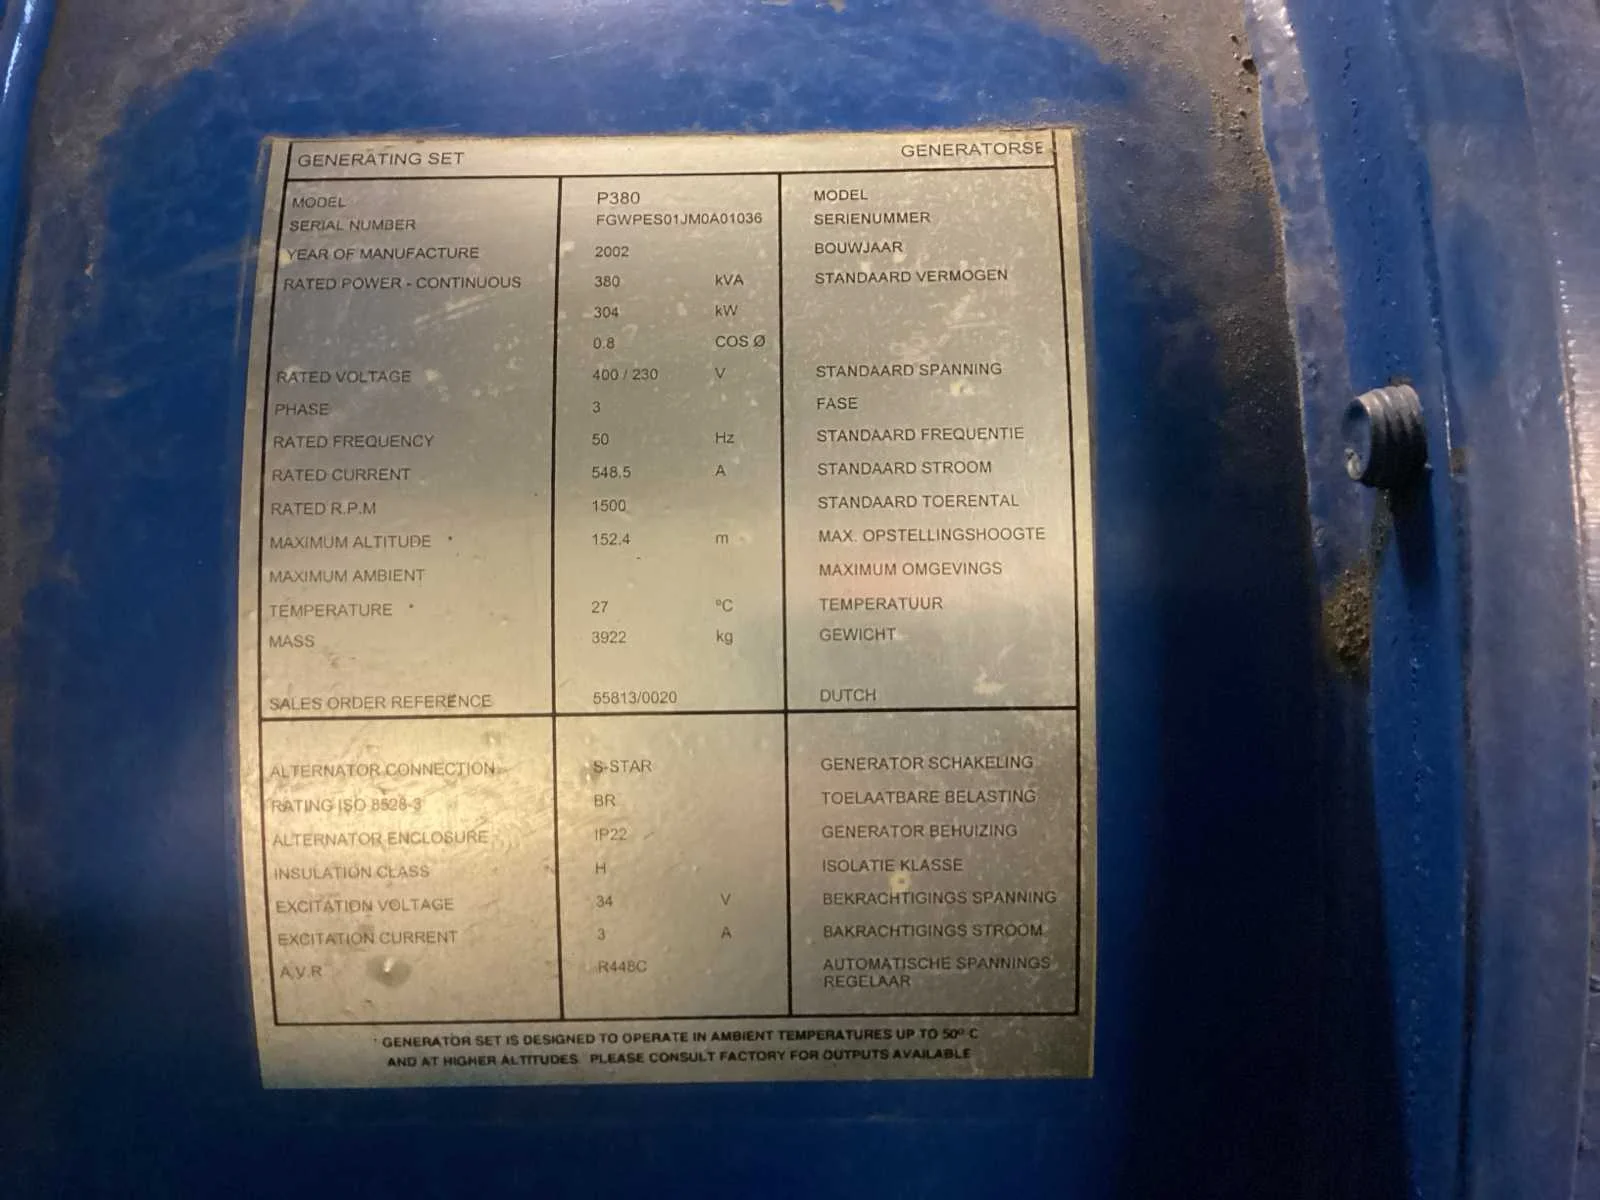 GENERATING SET GENERATORSE
MODEL P380 MODEL
SERIAL NUMBER FGWPES01JM0A01036 SERIENUMMER
YEAR OF MANUFACTURE 2002 BOUWJAAR
RATED POWER - CONTINUOUS 380 kVA STANDAARD VERMOGEN
304 kW
0.8 COS Ø
RATED VOLTAGE 400 / 230 V STANDAARD SPANNING
PHASE 3 FASE
RATED FREQUENCY 50 Hz STANDAARD FREQUENTIE
RATED CURRENT 548.5 A STANDAARD STROOM
RATED R.P.M 1500 STANDAARD TOERENTAL
MAXIMUM ALTITUDE * 152.4 m MAX. OPSTELLINGSHOOGTE
MAXIMUM AMBIENT MAXIMUM OMGEVINGS
TEMPERATURE * 27 ºC TEMPERATUUR
MASS 3922 kg GEWICHT
SALES ORDER REFERENCE 55813/0020 DUTCH
ALTERNATOR CONNECTION S-STAR GENERATOR SCHAKELING
RATING ISO 8528-3 BR TOELAATBARE BELASTING
ALTERNATOR ENCLOSURE IP22 GENERATOR BEHUIZING
INSULATION CLASS H ISOLATIE KLASSE
EXCITATION VOLTAGE 34 V BEKRACHTIGINGS SPANNING
EXCITATION CURRENT 3 A BAKRACHTIGINGS STROOM
A.V.R R448C AUTOMATISCHE SPANNINGS
REGELAAR
* GENERATOR SET IS DESIGNED TO OPERATE IN AMBIENT TEMPERATURES UP TO 50º C
AND AT HIGHER ALTITUDES PLEASE CONSULT FACTORY FOR OUTPUTS AVAILABLE